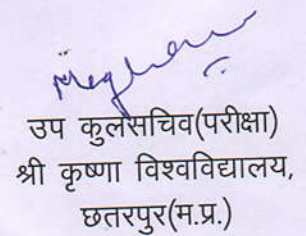 उप कुलसचिव(परीक्षा)
श्री कृष्णा विश्वविद्यालय,
छतरपुर(म.प्र.)